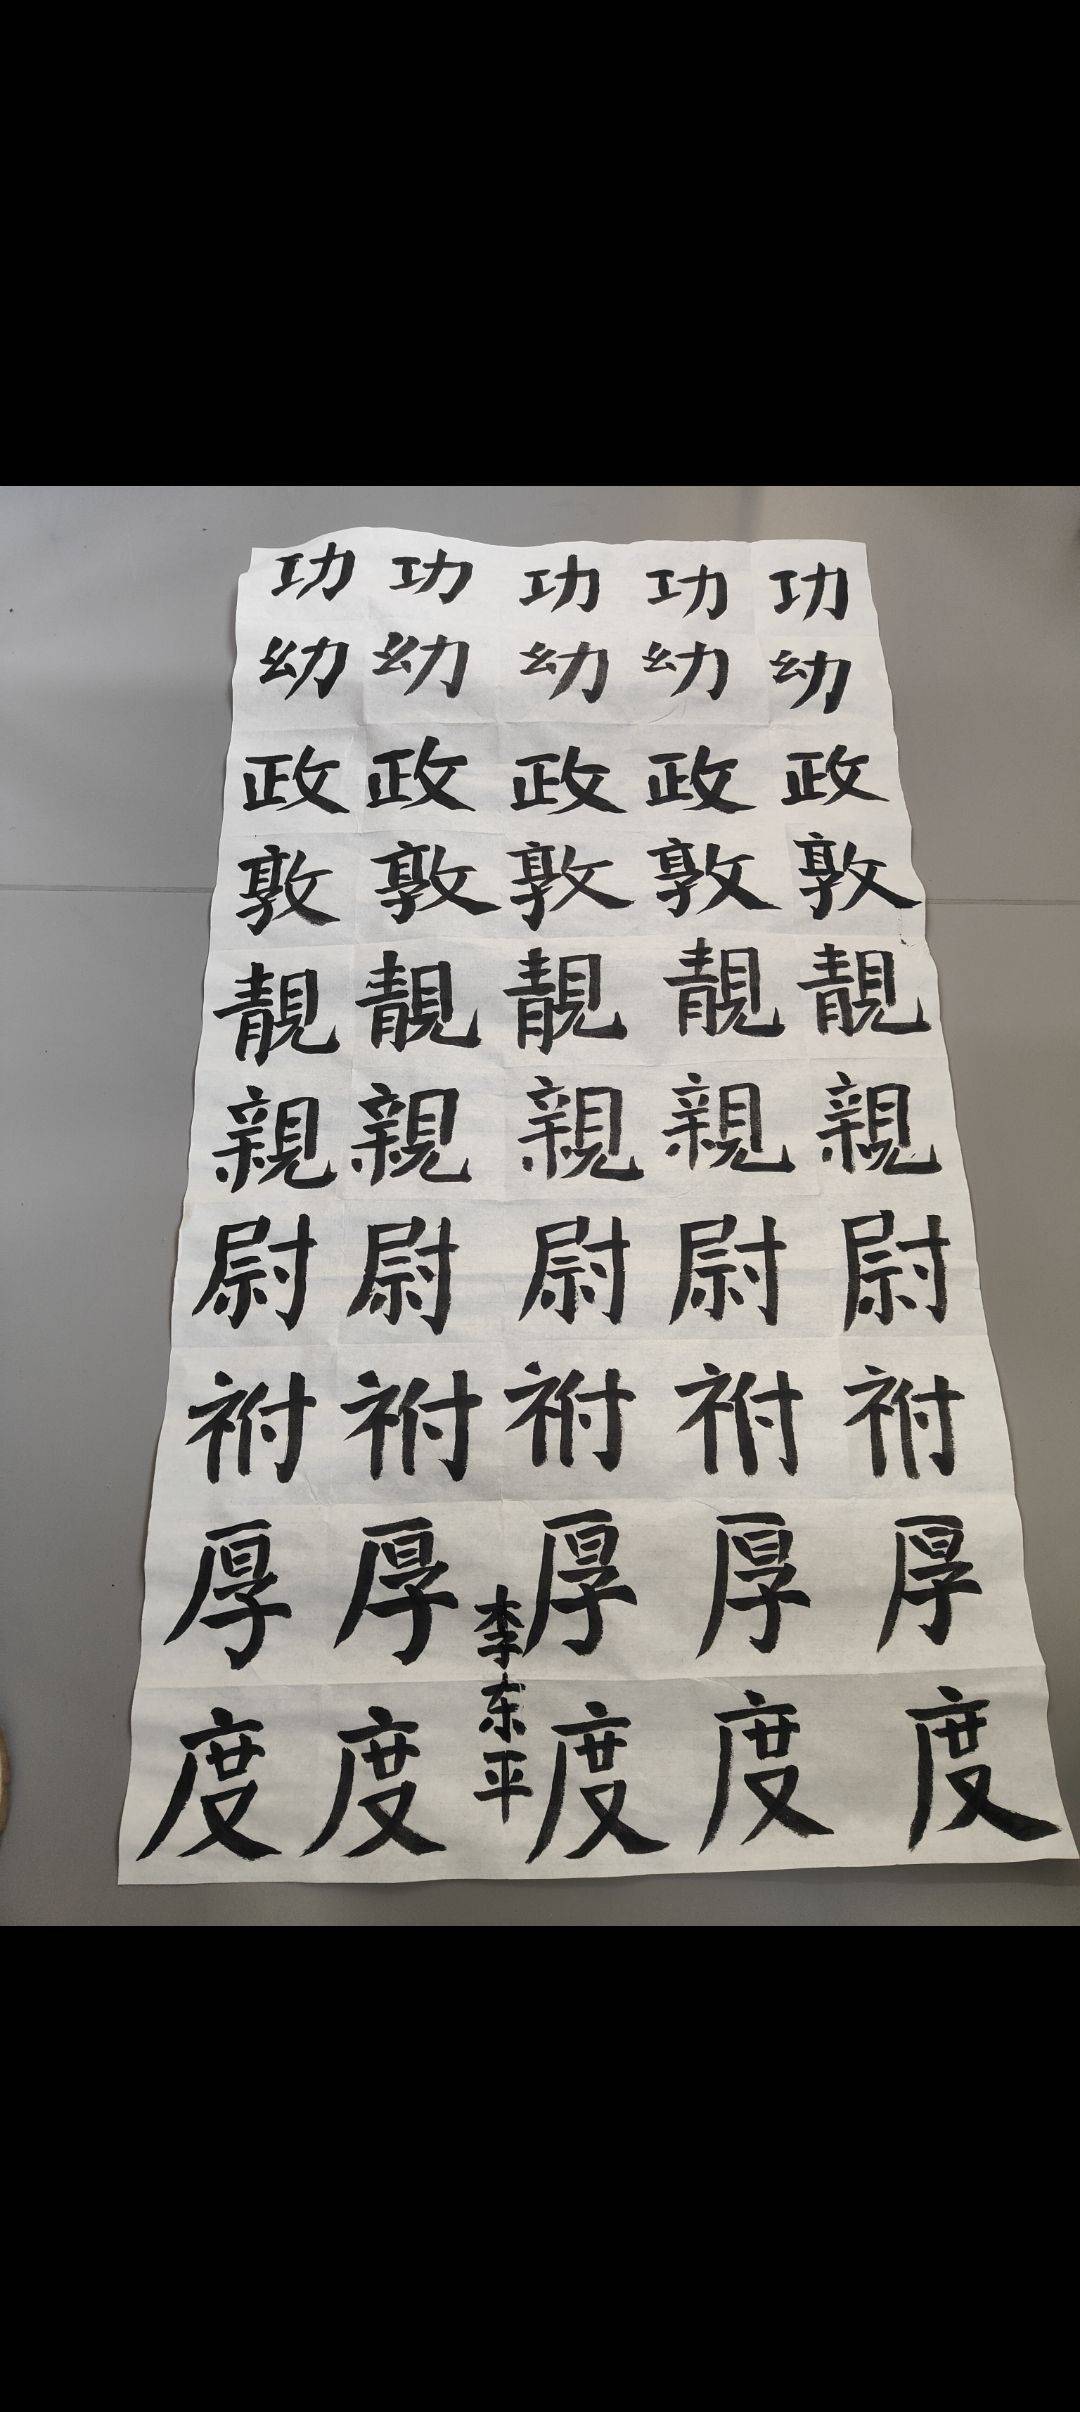 功功功功功
幼幼幼幼幼
政政政政政
敦敦敦敦敦
靚靚靚靚靚
親親親親親
尉尉尉尉尉
祔祔祔祔祔
厚厚厚厚厚
度度度度度
李东平